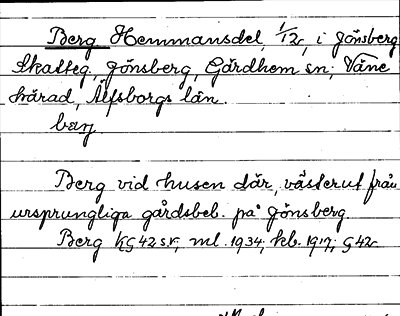 Berg Hemmansdel, 1/12, i Jönsberg
Skatteg. Jönsberg, Gärdhem sn; Väne
härad, Älfsborgs län.
bærj
Berg vid husen där, västerut från
ursprungliga gårdsbel. på Jönsberg.
Berg KG 42 sr, ml. 1934; kb. 1917; G 42